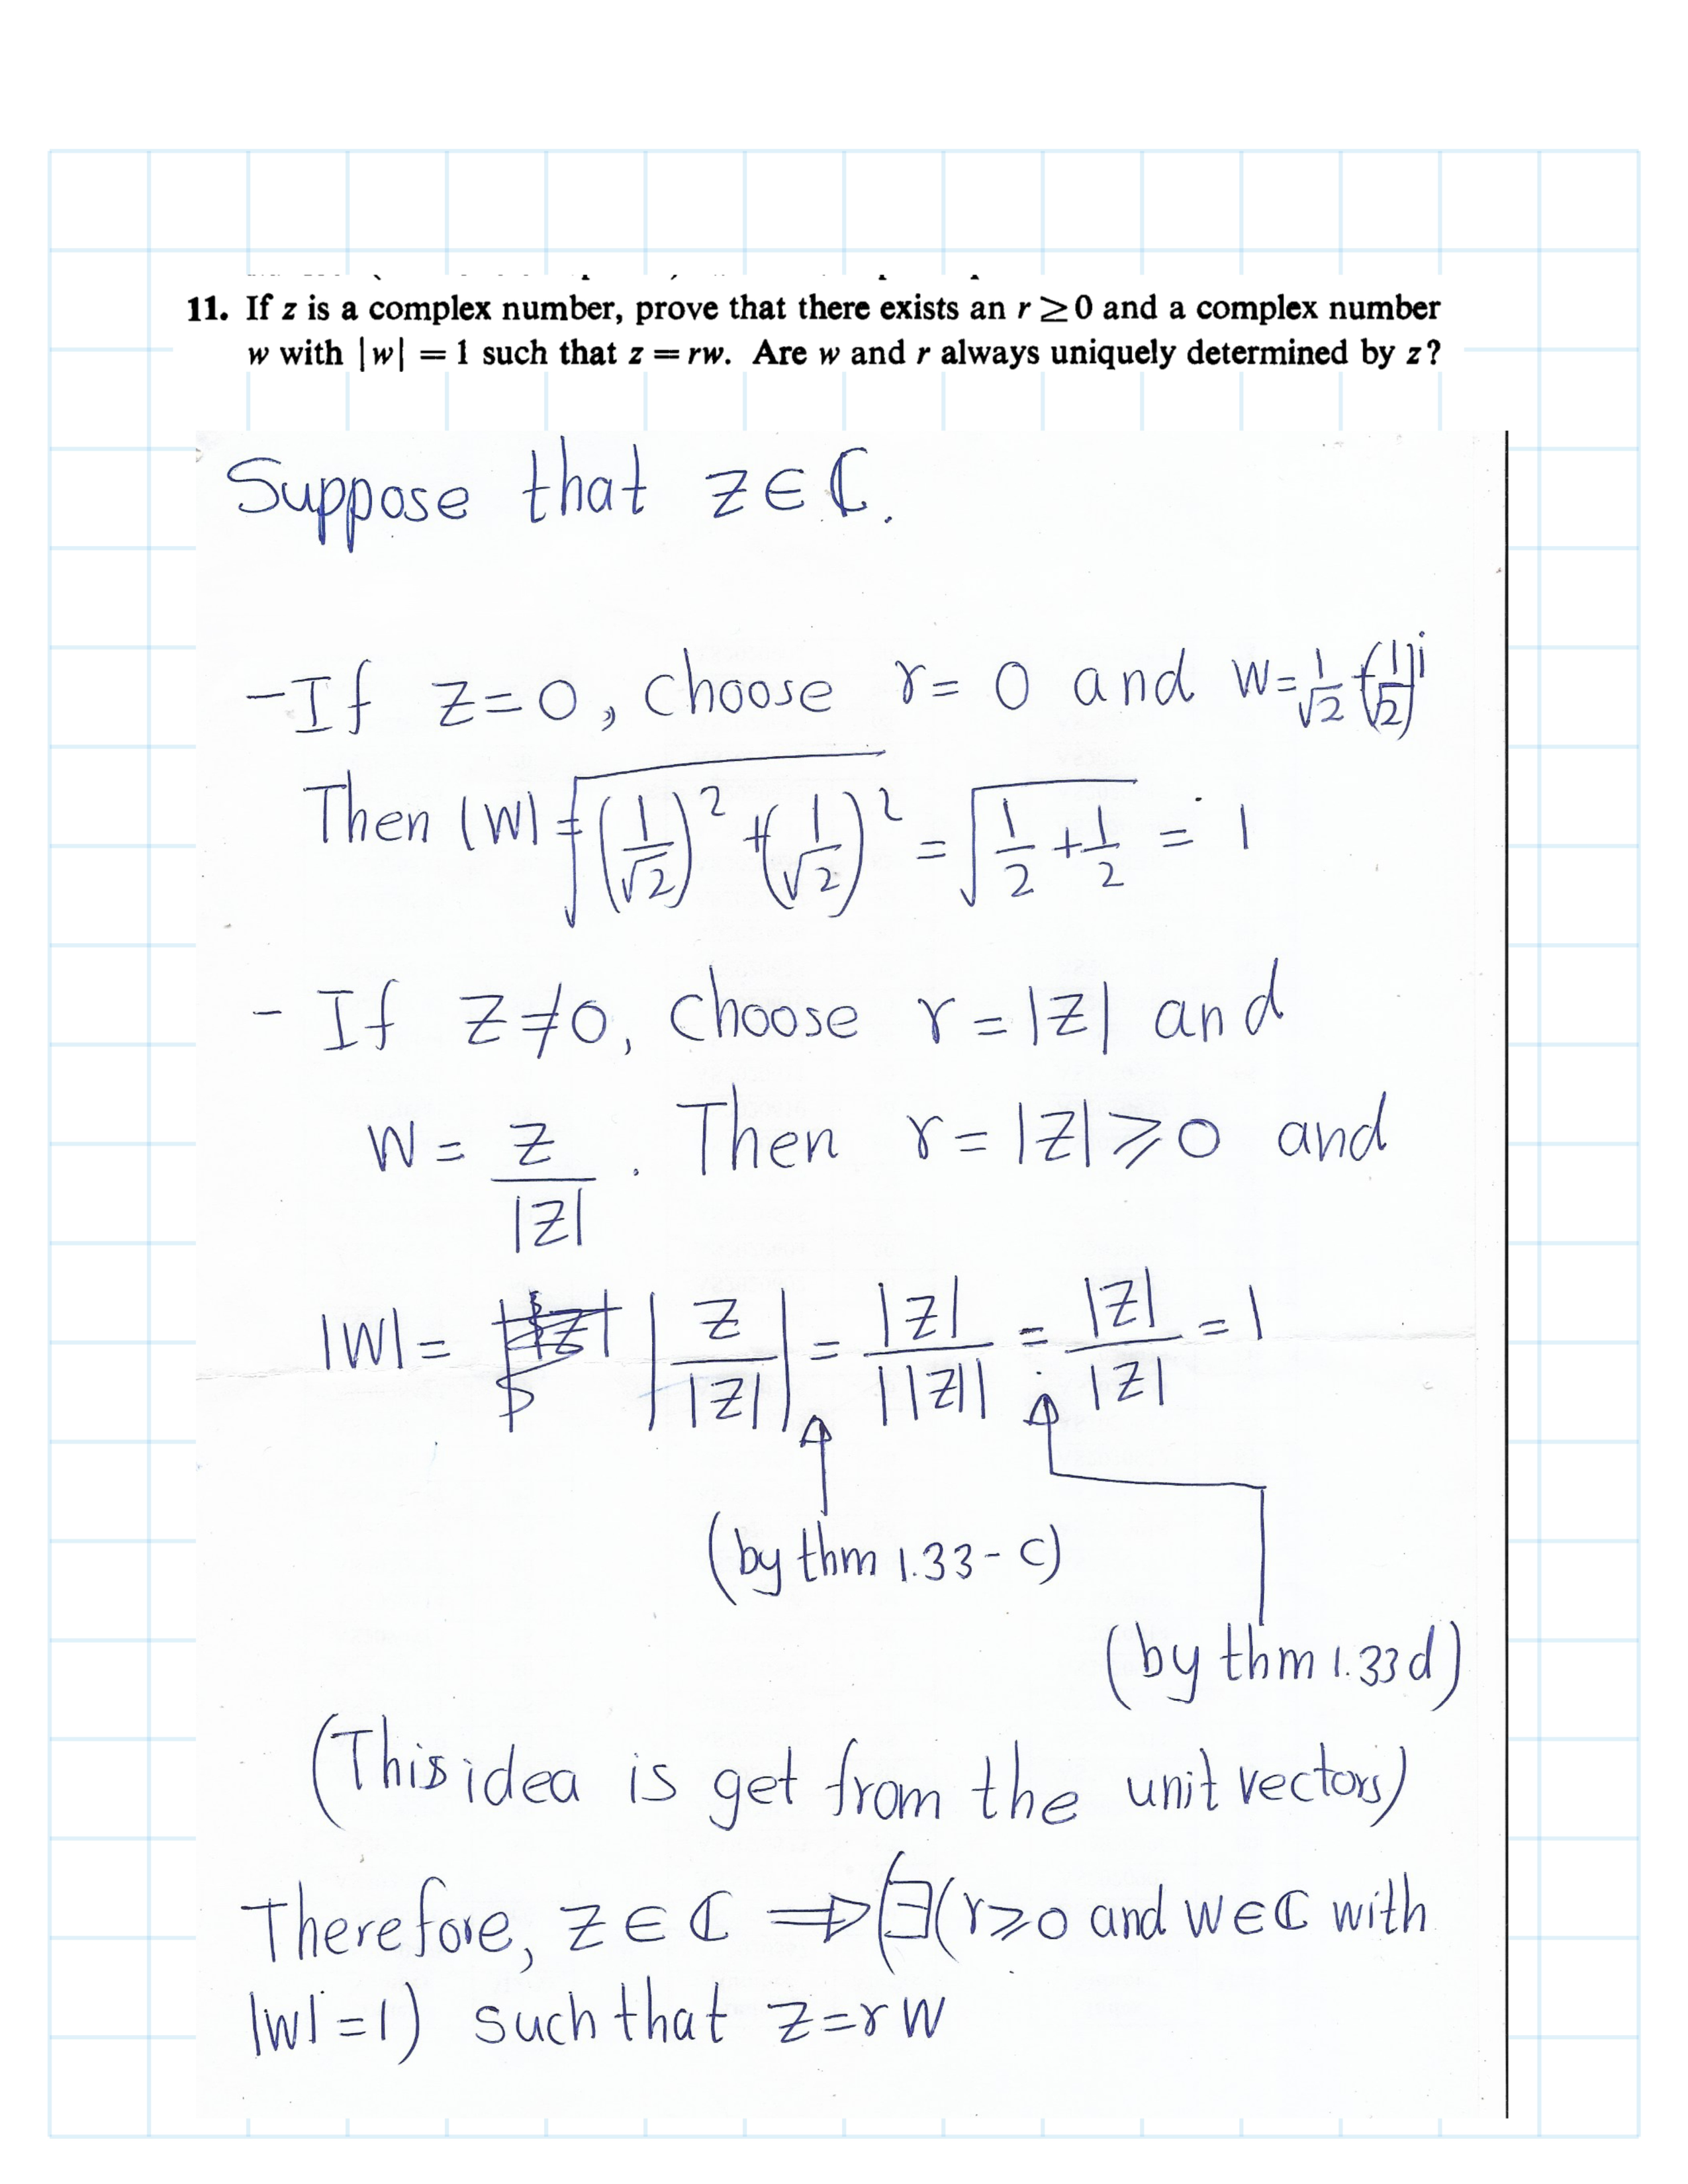 11. If z is a complex number, prove that there exists an r ≥ 0 and a complex number
w with |w| = 1 such that z = rw. Are w and r always uniquely determined by z?
Suppose that z ∈ ℂ.
- If z = 0, choose r = 0 and w = 1/√2 + (1/√2)i
Then |w| = √((1/√2)² + (1/√2)²) = √(1/2 + 1/2) = 1
- If z ≠ 0, choose r = |z| and
w = z/|z| . Then r = |z| ⩾ 0 and
|w| = |z/|z|| = |z|/||z|| = |z|/|z| = 1
(by thm 1.33 - c)
(by thm 1.33 d)
(This idea is get from the unit vectors)
Therefore, z ∈ ℂ ⟹ (∃(r ⩾ 0 and w ∈ ℂ with
|w| = 1) such that z = rw